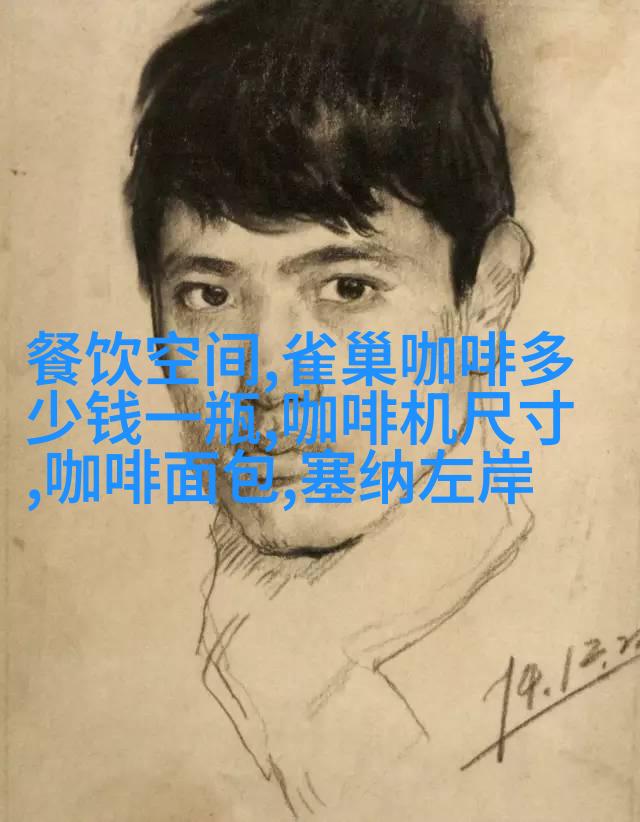 餐饮空间,雀巢咖啡多
少钱一瓶,咖啡机尺寸
,咖啡面包,塞纳左岸